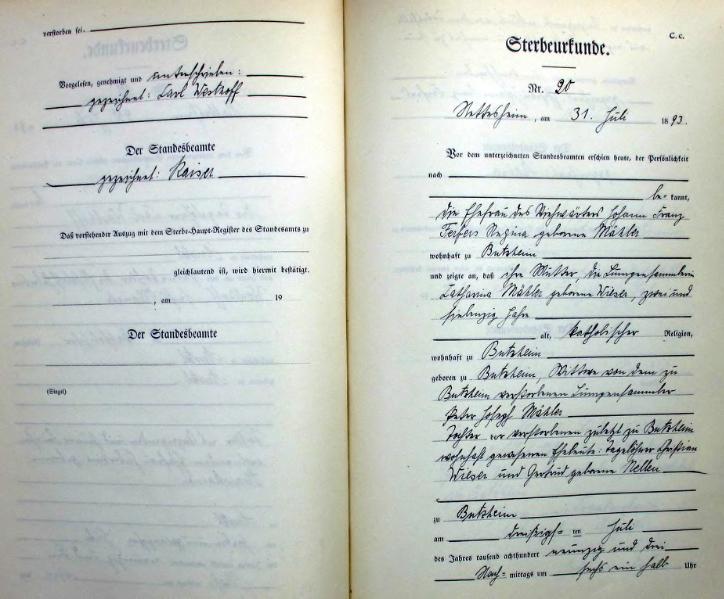 verstorben sei.
Vorgelesen, genehmigt und unterschrieben:
gezeichnet: Carl Westhoff
Der Standesbeamte
gezeichnet: Kaiser
Daß vorstehender Auszug mit dem Sterbe-Haupt-Register des Standesamts zu
gleichlautend ist, wird hiermit bestätigt.
, am 19
Der Standesbeamte
(Siegel)
C. c.
Sterbeurkunde.
Nr. 20
Nettesheim, am 31. Juli 1893.
Vor dem unterzeichneten Standesbeamten erschien heute, der Persönlichkeit
nach
be- kannt,
die Ehefrau des Johann Franz
Regina geborene Mähler
wohnhaft zu Butzheim
und zeigte an, daß ihre Mutter, die Lumpensammlerin
Catharina Mähler geborene Wieser, zwei und
siebenzig Jahre
alt, katholischer Religion,
wohnhaft zu Butzheim
geboren zu Butzheim, Wittwe von dem zu
Butzheim verstorbenen Lumpensammler
Peter Joseph Mähler
Tochter der verstorbenen zuletzt zu Butzheim
wohnhaft gewesenen Eheleute: Tagelöhner Christian
Wieser und Gertrud geborene Nellen
zu Butzheim
am dreißigs- ten Juli
des Jahres tausend achthundert neunzig und drei
Nach- mittags um sechs ein halb Uhr